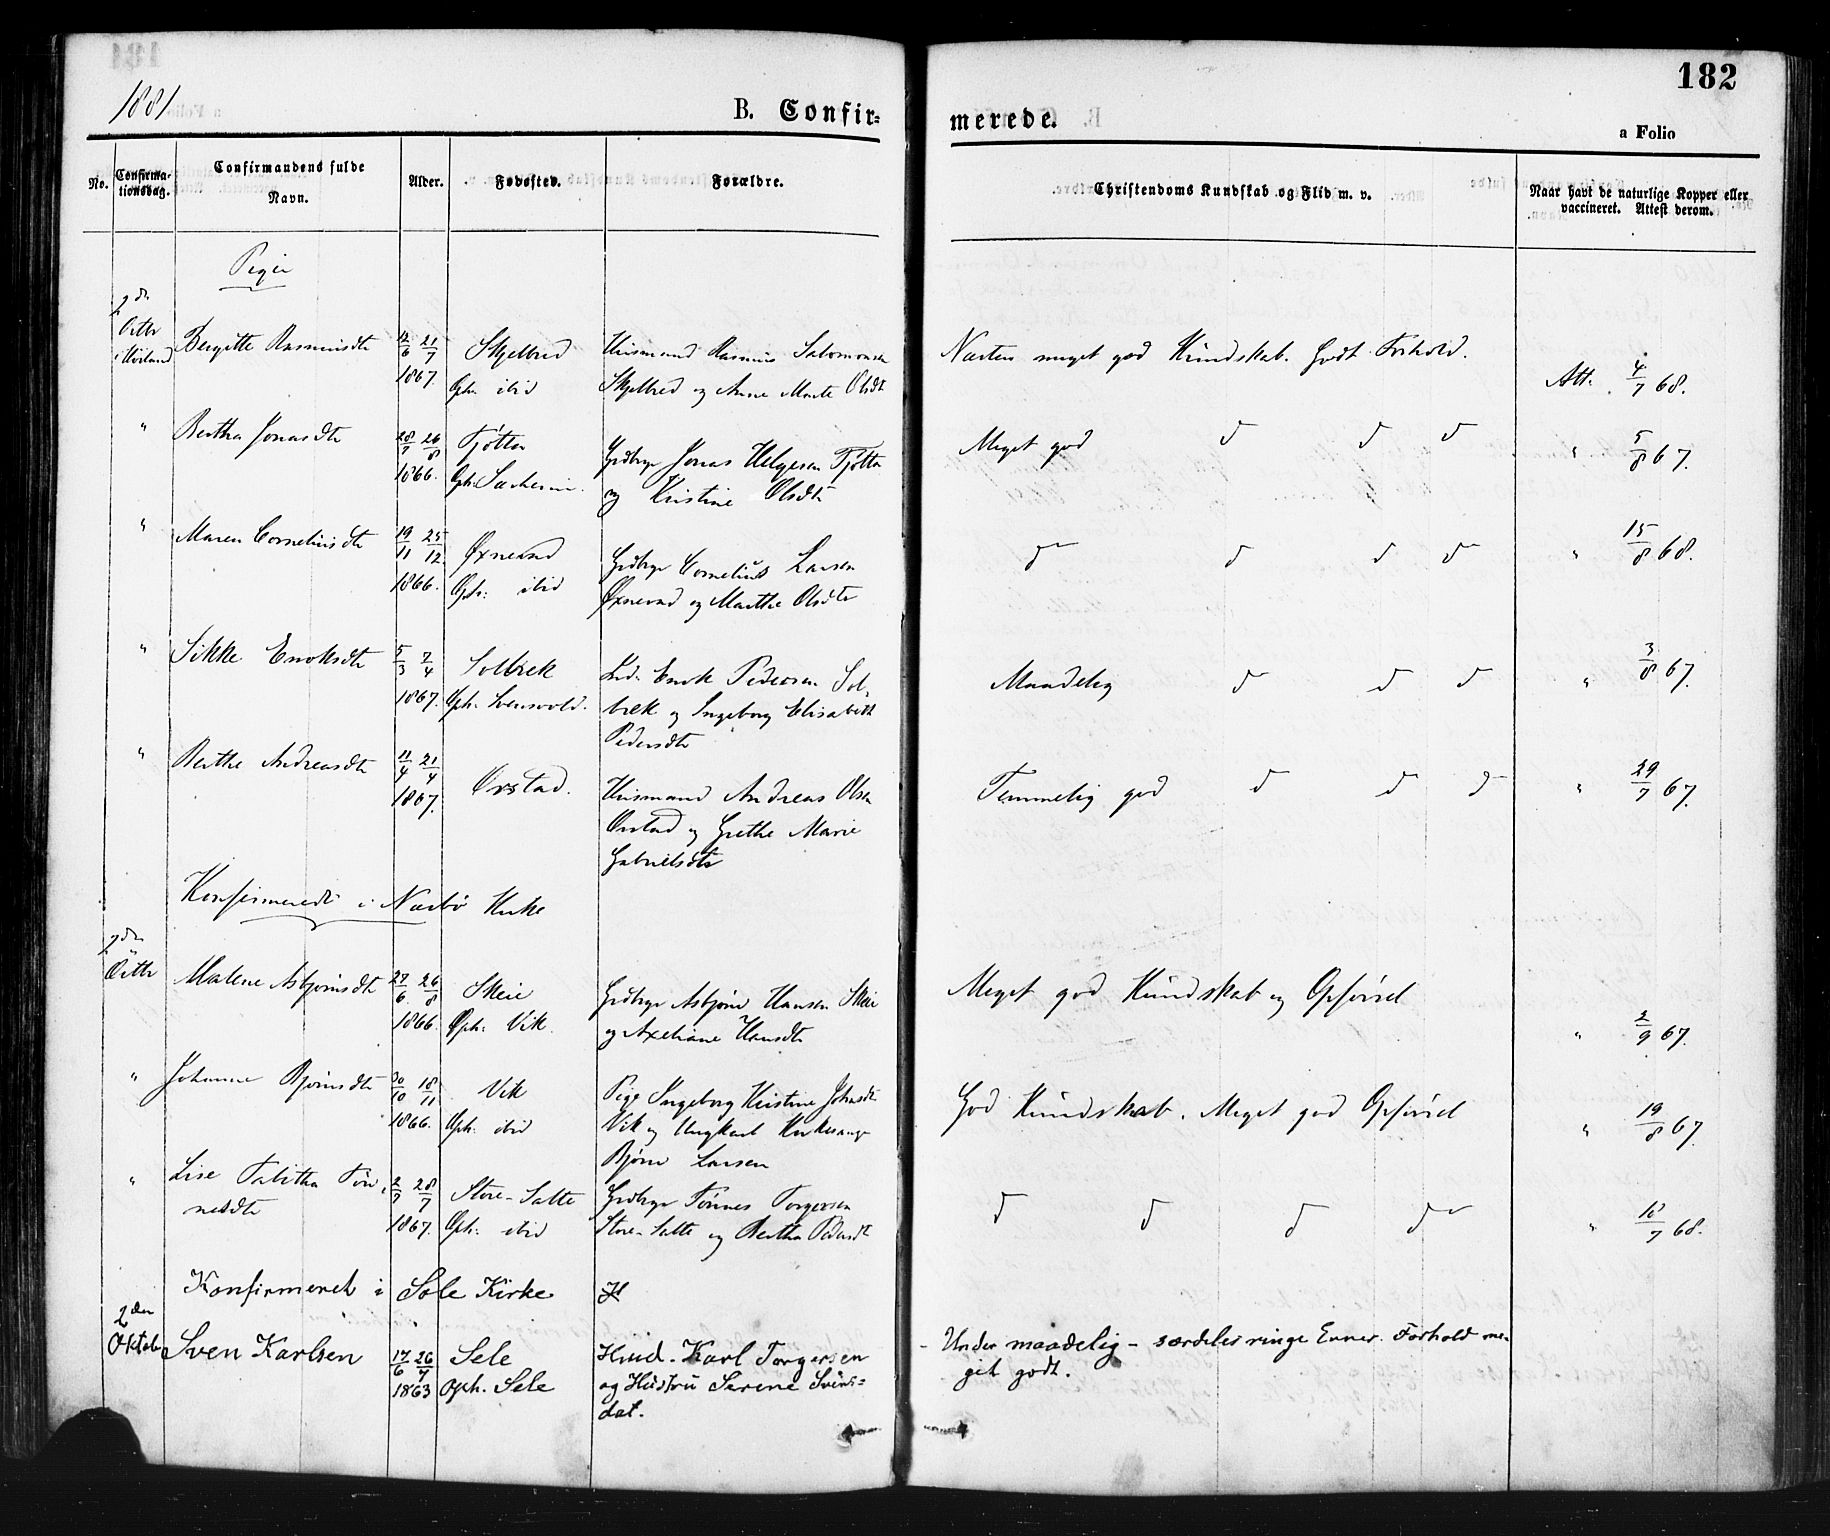 182
1881
B. Confir=
merede.
a Folio
No.
Confirma-
tionsdag.
Confirmandens fulde
Navn.
Alder.
Fødested.
Forældre.
Christendoms Kundskab og Flid m. v.
Naar havt de naturlige Kopper eller
vaccineret. Attest derom.
Piger
2den
Octbr
i Høiland
Bergitte Rasmusdtr
12/6 21/7
1867.
Skjelbred
Oph. ibid
Husmand Rasmus Salomonsen
Skjelbred og Anne Marte Olsdt
Næsten meget god Kundskab. Godt Forhold.
Att. 4/7 68.
" Bertha Jonasdtr
28/7 26/8
1866.
Tjøtta
Oph.
Grdbrgr Jonas Helgesen Tjøtta
og Kristine Olsdtr
Meget god do do do
" 5/8 67.
" Maren Corneliusdtr
19/11 25/12
1866.
Øxnevad
Oph. ibid
Grdbrgr Cornelius Larsen
Øxnevad og Marthe Olsdtr
do do do do
" 15/8 68.
" Sikke Enoksdtr
5/3 7/4
1867.
Solbrek
Oph. Svensvold.
Lod. Enok Pedersen Sol-
brek og Ingeborg Elisabeth
Pedersdtr
Maadelig do do do
" 3/8 67.
" Berthe Andreasdtr
11/4 21/4
1867.
Orstad.
Husmand Andreas Olsen
Orstad og Grethe Marie
Gabrielsdtr
Temmelig god do do do
" 29/7 67.
Konfirmerede i Nærbø Kirke
2den
Octbr
Malene Asbjørnsdtr
27/6 26/8
1866.
Skeie
Oph. Vik.
Grdbrgr Asbjørn Hansen Skeie
og Axeliane Hansdtr
Meget god Kundskab og Opførsel
" 2/9 67.
" Johanne Bjørnsdtr
30/10 18/11
1866.
Vik
Oph. ibid
Pige Ingeborg Kristine Johnsdtr
Vik og Ungkarl Kirkesanger
Bjørn Larsen
God Kundskab. Meget god Opførsel
" 19/8 67.
" Lise Tabitha Tøn-
nesdtr
2/7 28/7
1867.
Store-Salte
Oph. ibid
Grdbrgr Tønnes Torgersen
Store-Salte og Bertha Pedersdt
do do do do
" 16/7 68.
Konfirmeret i Sole Kirke
2den
Oktober
Sven Karlsen
17/6 26/7
1863
Sele
Oph. Sele
Hmd. Karl Torgersen
og Hustru Serene Svens=
dat.
- Under maadelig - særdeles ringe Evner. Forhold me-
get godt.